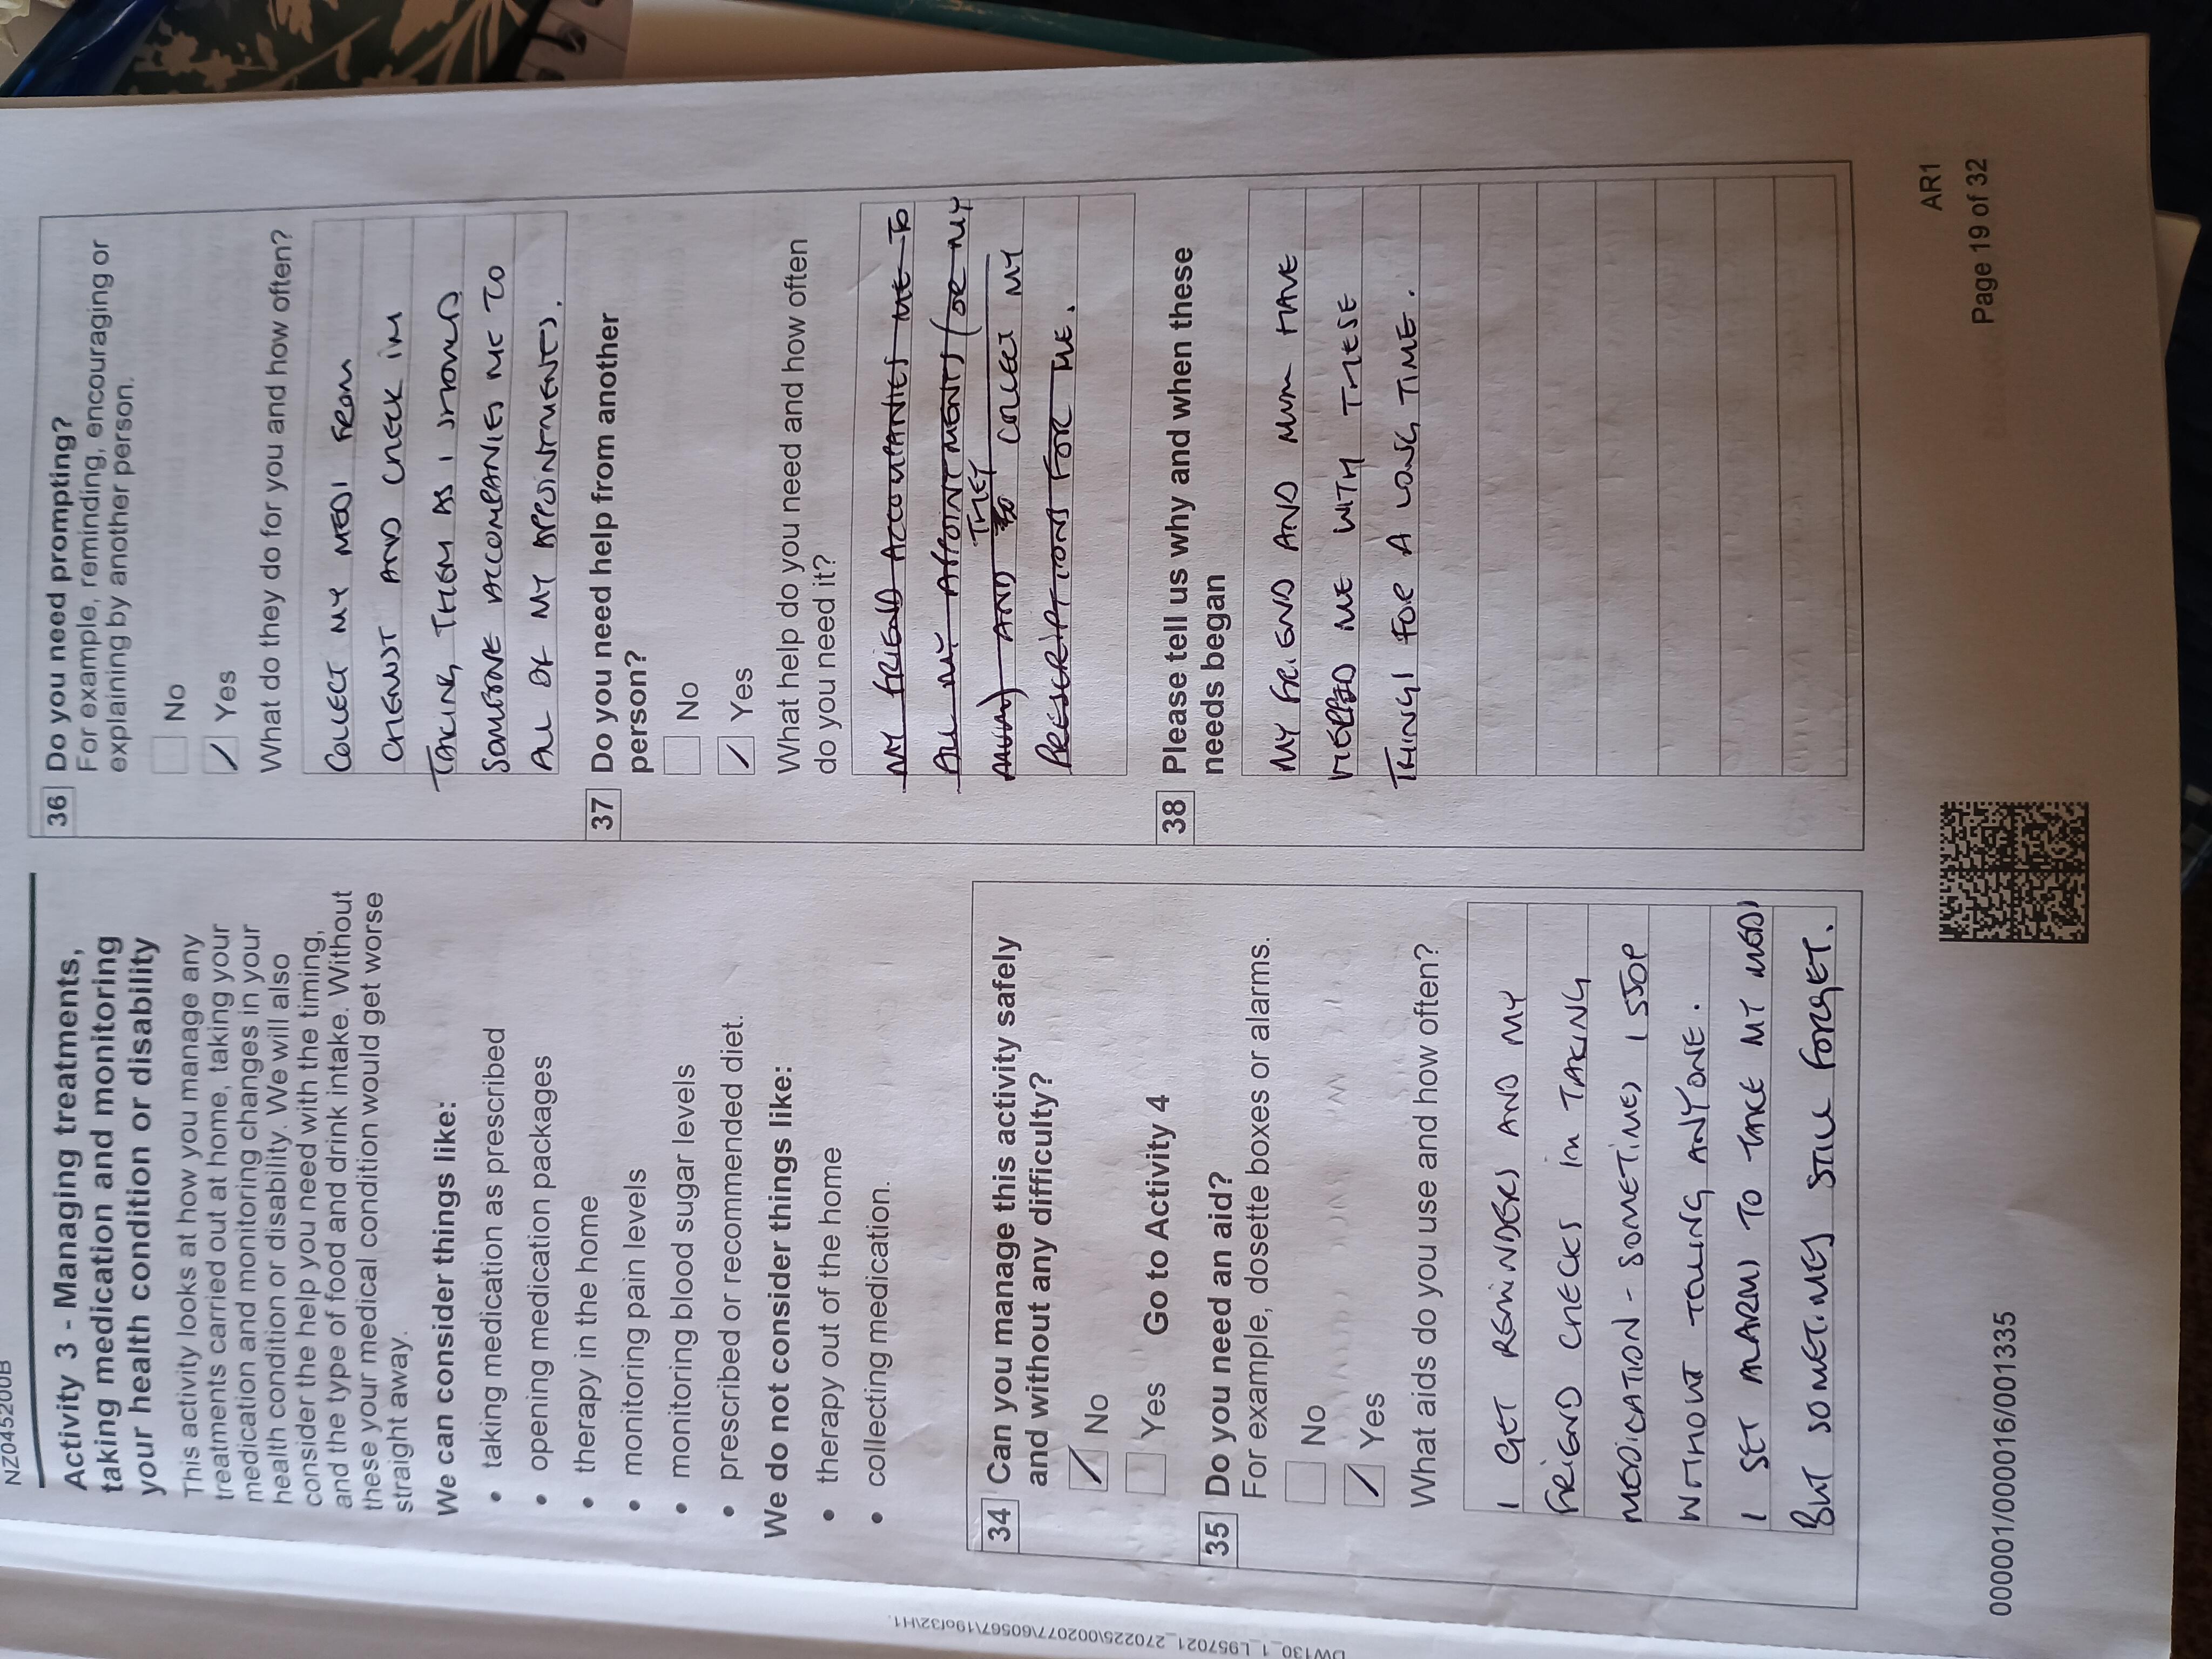 NZ045200B
Activity 3 - Managing treatments,
taking medication and monitoring
your health condition or disability
This activity looks at how you manage any
treatments carried out at home, taking your
medication and monitoring changes in your
health condition or disability. We will also
consider the help you need with the timing,
and the type of food and drink intake. Without
these your medical condition would get worse
straight away.
We can consider things like:
• taking medication as prescribed
• opening medication packages
• therapy in the home
• monitoring pain levels
• monitoring blood sugar levels
• prescribed or recommended diet.
We do not consider things like:
• therapy out of the home
• collecting medication.
34 Can you manage this activity safely
and without any difficulty?
No
Yes Go to Activity 4
35 Do you need an aid?
For example, dosette boxes or alarms.
No
Yes
What aids do you use and how often?
I GET REMINDERS AND MY
FRIEND CHECKS IN TAKING
MEDICATION - SOMETIMES I STOP
WITHOUT TELLING ANYONE.
I SET ALARMS TO TAKE MY MEDS
BUT SOMETIMES STILL FORGET.
36 Do you need prompting?
For example, reminding, encouraging or
explaining by another person.
No
Yes
What do they do for you and how often?
COLLECT MY MEDS FROM
CHEMIST AND CHECK IM
TAKING THEM AS I SHOULD
SOMEONE ACCOMPANIES ME TO
ALL OF MY APPOINTMENTS.
37 Do you need help from another
person?
No
Yes
What help do you need and how often
do you need it?
MY FRIEND ACCOMPANIES ME TO
ALL MY APPOINTMENTS (OR MY
MUM) AND THEY COLLECT MY
PRESCRIPTIONS FOR ME.
38 Please tell us why and when these
needs began
MY FRIEND AND MUM HAVE
HELPED ME WITH THESE
THINGS FOR A LONG TIME.
000001/000016/001335
AR1
Page 19 of 32
DW130_1_L957021_270225\002077\60567\19of32\H1.